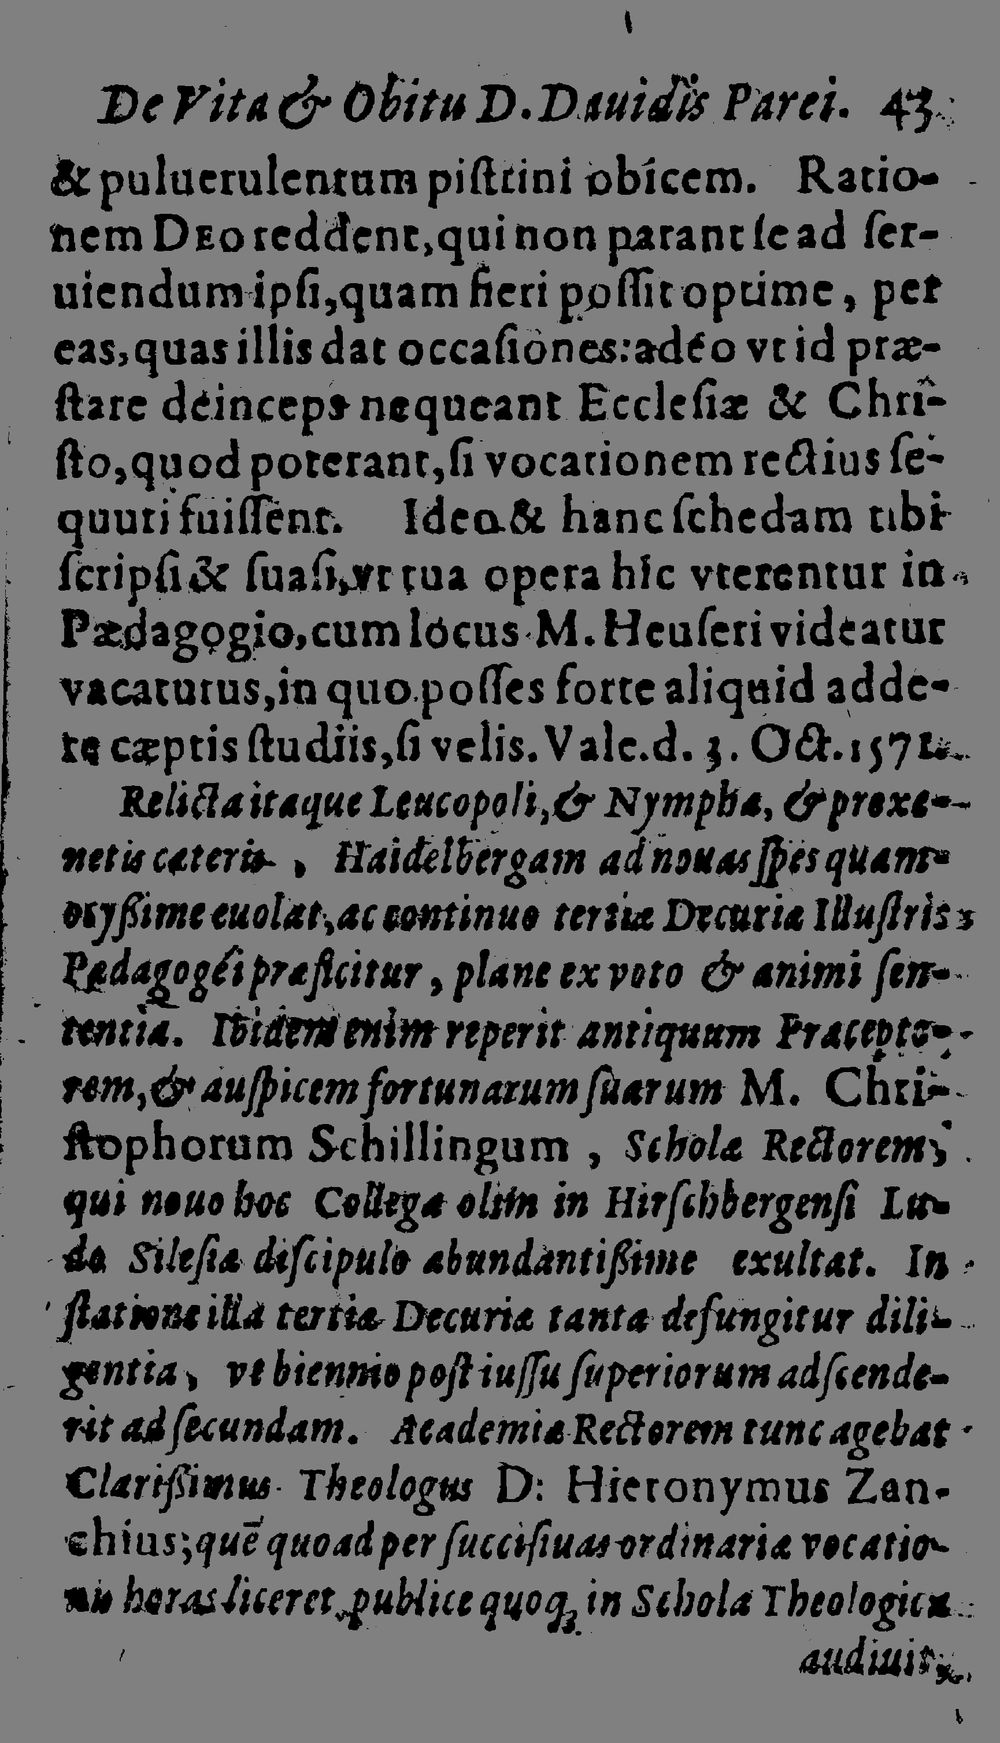 De Vita & Obitu D. Dauidis Parei. 43
& puluerulentum piſtrini obicem. Ratio-
nem DEO reddent, qui non parant ſe ad ſer-
uiendum ipſi, quam fieri poſſit optime, per
eas, quas illis dat occaſiones: adeo vt id præ-
ſtare deinceps nequeant Eccleſiæ & Chri-
ſto, quod poterant, ſi vocationem rectius ſe-
quuti fuiſſent. Ideo & hanc ſchedam tibi
ſcripſi & ſuaſi, vt tua opera hîc vterentur in
Pædagogio, cum locus M. Heuſeri videatur
vacaturus, in quo poſſes forte aliquid adde-
re cæptis ſtudiis, ſi velis. Vale. d. 3. Oct. 1571.
Relicta itaque Leucopoli, & Nympha, & proxe-
netis cæteris, Haidelbergam ad nouas ſpes quant-
ocyßime euolat, ac continuo tertiæ Decuriæ Illuſtris
Pædagogéi præficitur, plane ex voto & animi ſen-
tentia. Ibidem enim reperit antiquum Præcepto-
rem, & auſpicem fortunarum ſuarum M. Chri-
ſtophorum Schillingum, Scholæ Rectorem,
qui nouo hoc Collega olim in Hirſchbergenſi Lu-
do Sileſiæ diſcipulo abundantißime exultat. In
ſtatione illa tertiæ Decuriæ tanta defungitur dili-
gentia, vt biennio poſt iuſſu ſuperiorum adſcende-
rit ad ſecundam. Academiæ Rectorem tunc agebat
Clarißimus Theologus D: Hieronymus Zan-
chius; quē quoad per ſucciſiuas ordinariæ vocatio-
nis horas liceret, publice quoq; in Schola Theologica
audiuit